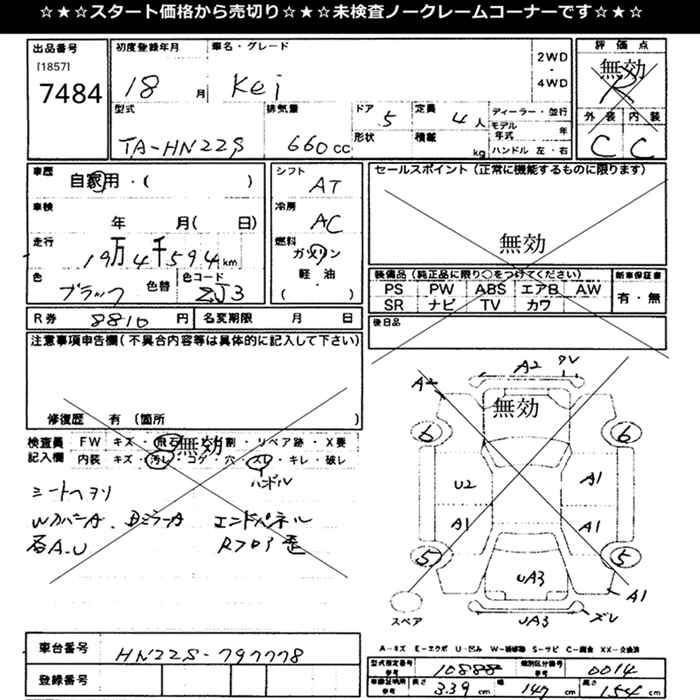 ☆★☆★スタート価格から売切り☆★☆★未検査ノークレームコーナーです☆★☆
出品番号 初度登録年月 車名・グレード 評価点
[1857]
7484 18 月 Kei 2WD・4WD 無効 R
型式 排気量 ドア 5 定員 4人 ディーラー・並行 外装 内装
TA-HN22S 660cc 形状 積載 kg モデル年式 年 C C
ハンドル 左・右
車歴 自家用・( ) シフト AT セールスポイント(正常に機能するものに限ります)
車検 年 月( 日) 冷房 AC 無効
走行 19万4千594km 燃料 ガソリン
色 ブラック 色替 色コード ZJ3 軽・油 ( )
装備品(純正品に限り○をつけてください) 新車保証書
PS PW ABS エアB AW 有・無
SR ナビ TV カワ
R券 8810円 名変期限 月 日 後日品
注意事項申告欄(不具合内容等は具体的に記入して下さい)
修復歴 有(箇所 )
検査員 FW キズ・飛石・無効割・リペア跡・X要
記入欄 内装 キズ・汚レ・コゲ・穴・スレ・キレ・破レ
ハンドル
シートヘタリ
WカバーA、BミラーA エンドパネル
石A.U Rフロア歪
A2 A2 無効
6 6
U2 A1
A1 A1
5 5
UA3 A1
スペア UA3 ズレ
A-キズ E-エクボ U-凹み W-補修跡 S-サビ C-腐食 XX-交換済
車台番号 HN22S-797778
登録番号
型式指定番号 参考 10888 類別区分番号 参考 0014
車検証明用 参考 長さ 3.39 cm 幅 147 cm 高さ 154 cm